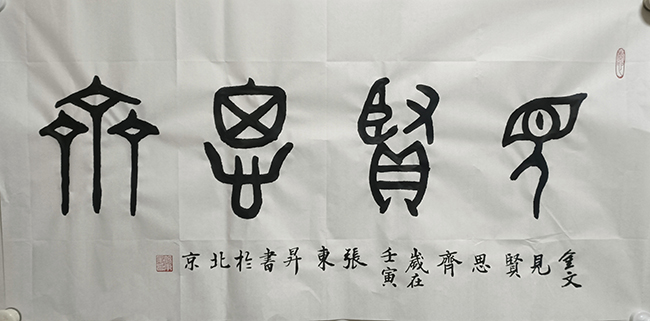 見賢思齊
金文見賢思齊歲在壬寅張東昇書於北京